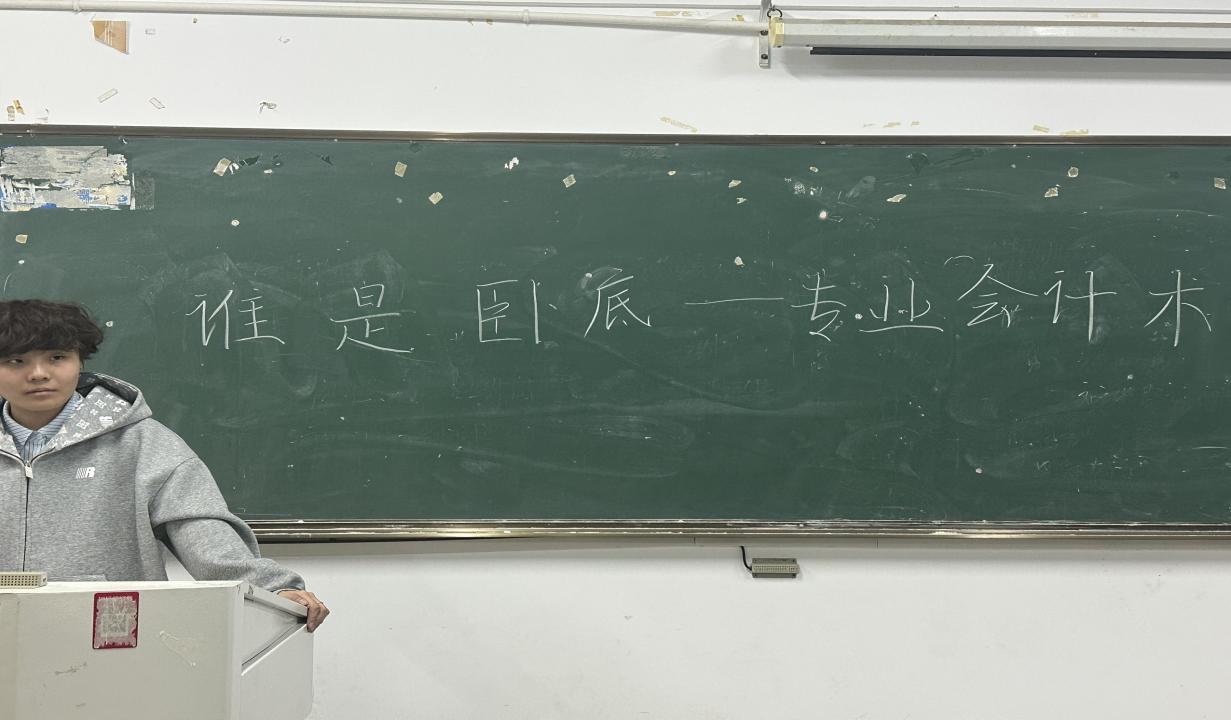 谁是卧底——专业会计术